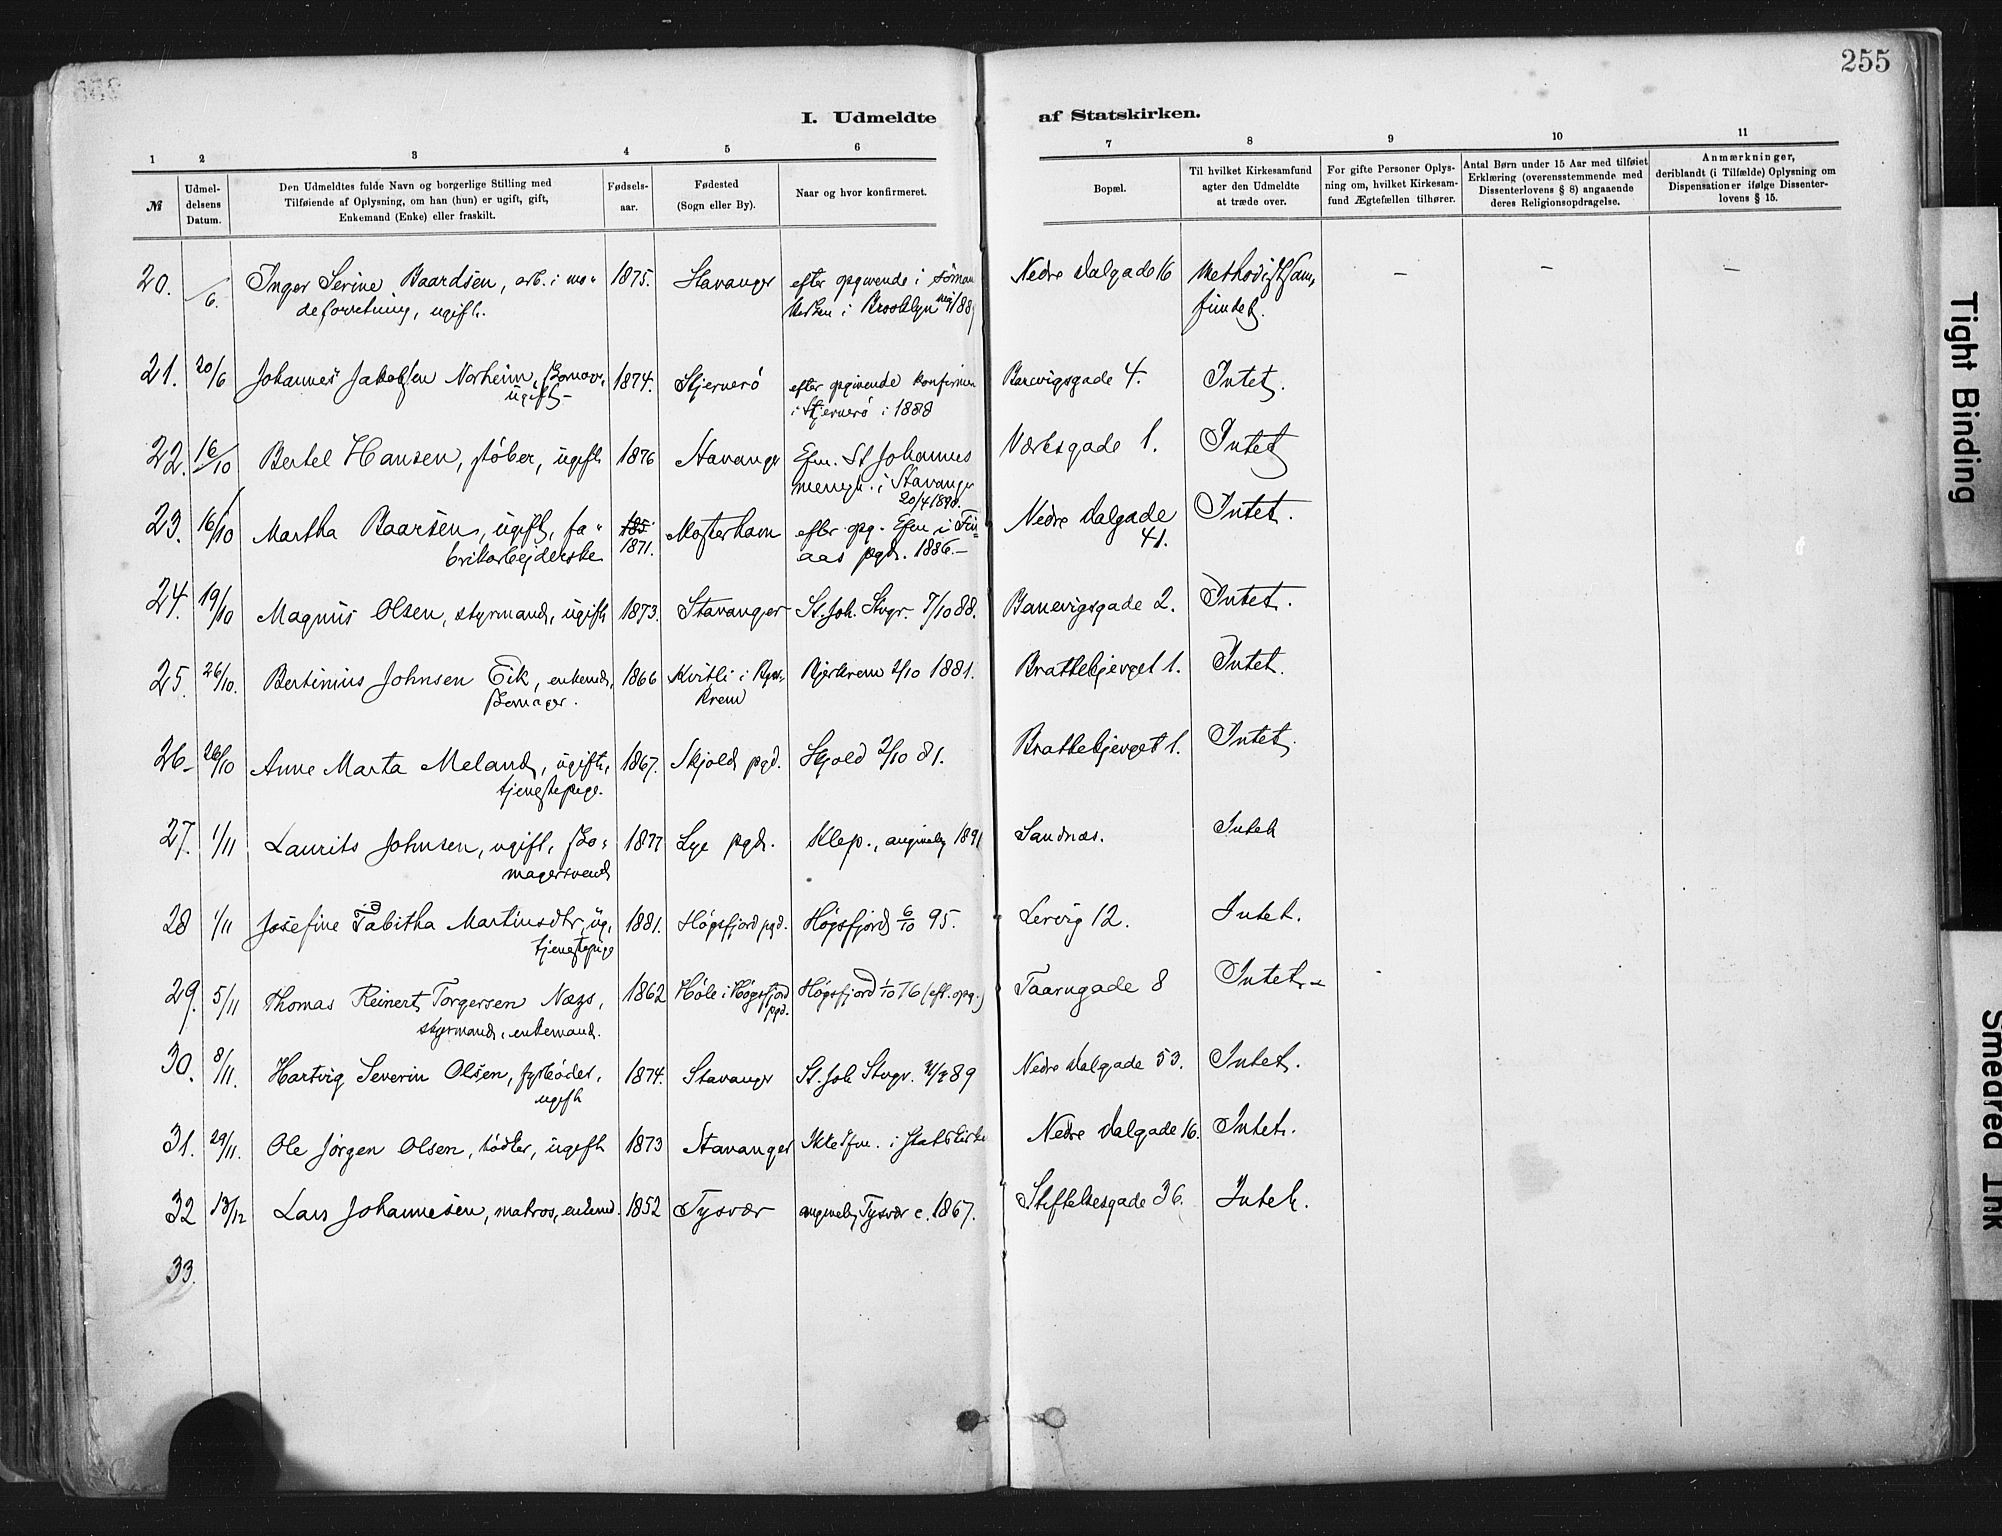 255
I. Udmeldte af Statskirken.
1 2 3 4 5 6 7 8 9 10 11
№
Udmel-
delsens
Datum.
Den Udmeldtes fulde Navn og borgerlige Stilling med
Tilføiende af Oplysning, om han (hun) er ugift, gift,
Enkemand (Enke) eller fraskilt.
Fødsels-
aar.
Fødested
(Sogn eller By).
Naar og hvor konfirmeret.
Bopæl.
Til hvilket Kirkesamfund
agter den Udmeldte
at træde over.
For gifte Personer Oplys-
ning om, hvilket Kirkesam-
fund Ægtefællen tilhører.
Antal Børn under 15 Aar med tilføiet
Erklæring (overensstemmende med
Dissenterlovens § 8) angaaende
deres Religionsopdragelse.
Anmærkninger,
deriblandt (i Tilfælde) Oplysning om
Dispensationer ifølge Dissenter-
lovens § 15.
20. /6. Inger Serine Baardsen, arb. i mo- 1875. Stavanger efter opgivende i söman Nedre Dalgade 16 Methodistsam, – – –
deforretning, ugift. i Brooklyn fundet.
21. 20/6 Johannes Jakobsen Norheim, 1874. Stjernerö efter opgivende Banevigsgade 4. Intet.
ugift – i Stjernerö i 1888
22. 16/10 Bertel Hansen, støber, ugift 1876 Stavanger St Johannes Værksgade 1. Intet
menigh. i Stavanger
20/4 1890.
23. 16/10 Martha Baarsen, ugift, fa- 1871. Mosterhavn efter opg. i Fin- Nedre Dalgade Intet.
brikarbejderske aas pgd. 1886.– 41.
24. 19/10 Magnus Olsen, styrmand, ugift 1873. Stavanger St. Joh. Stvgr. 7/10 88. Banevigsgade 2. Intet.
25. 26/10. Bertinius Johnsen Eik, enkemd, 1866 Kvitli i Bjerkrem 2/10 1881. Brattebjerget 1. Intet.
skomager. krem
26. 26/10 Anne Marta Meland, ugift, 1867. Skjold pgd. Skjold 2/10 81. Brattebjerget 1. Intet.
tjenestepige.
27. 1/11 Laurits Johnsen, ugift, sko- 1877 Lye pgd. Klep., angivelig 1891 Sandnæs. Intet
magersvend
28 1/11 Josefine Tabitha Martinsdtr, ug, 1881. Högsfjord pgd. Högsfjord 6/10 95. Lervig 12. Intet.
tjenestepige
29. 5/11 Thomas Reinert Torgersen Næss, 1862 Höle i Högsfjord Högsfjord 1/10 76 (eft. opg.) Taarngade 8 Intet.
styrmand, enkemand. pgd.
30. 8/11. Hartvig Severin Olsen, fyrbøder, 1874. Stavanger St. Joh Stvgr. 89 Nedre Dalgade 53. Intet.
ugift
31. 29/11. Ole Jörgen Olsen, bødker, ugift 1873 Stavanger Ikke i Statskirke Nedre Dalgade 16. Intet.
32 13/12 Lars Johannesen, matros, enkemd. 1852 Tysvær angivelig Tysvær c. 1867. Stiftelsesgade 36. Intet.
33.
Tight Binding
Smeared Ink